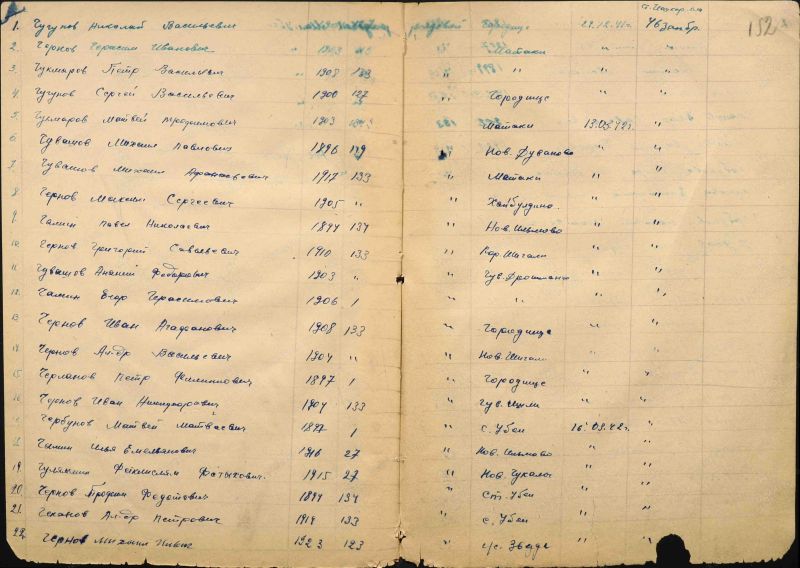 152
1. Чугунов Николай Васильевич Городище 29.12.41г. 46 запбр.
2. Чернов Герасим Иванович 1903 Матаки " "
3. Чукмаров Петр Васильевич 1908 133 " " " "
4. Чугунов Сергей Васильевич 1900 127 " Городище " "
5. Чукмаров Матвей Трофимович 1903 " Матаки 13.03.42г. "
6 Чувашов Михаил Павлович 1896 " Нов. Дуваново " "
7. Чувашов Михаил Афанасьевич 1917 133 " Матаки " "
8 Чернов Максим Сергеевич 1905 " " Хайбулдино " "
9. Чамин Павел Николаевич 1894 134 " Нов. Ильмово " "
10. Чернов Григорий Савельевич 1910 133 " Кар. Шигали " "
11. Чувашов Ананий Федорович 1903 " " Чув. Дрожжаное " "
12. Чамин Егор Герасимович 1906 1 " " " "
13. Чернов Иван Агафонович 1908 133 " Городище " "
14. Чернов Ал-др Васильевич 1904 " " Нов. Шигали " "
15. Петр 1897 1 " Городище " "
16 Чернов Иван Никифорович 1904 133 " Чув. " "
Чербунов Матвей Матвеевич 1897 1 " с. Убеи 16.03.42г. "
Чамин Илья Емельянович 1916 27 " Нов. Ильмово " "
19. Фатыхович. 1915 27 " Нов. Чукалы " "
20. Чернов Трофим Федотович 1894 134 " Ст. Убеи " "
21. Чеканов Ал-др Петрович 1914 133 " с. Убеи " "
22. Чернов Михаил Ильич 1923 123 " "